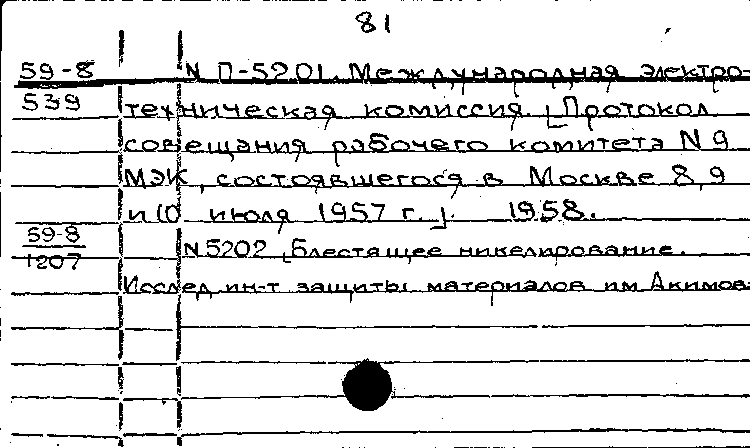 81
59-8 N П-5201. Международная электро-
539 техническая комиссия. [Протокол
совещания рабочего комитета N 9
МЭК, состоявшегося в Москве 8, 9
и 10 июля 1957 г.]. 1958.
59-8
1207 N 5202 [Блестящее никелирование.
Исслед ин-т защиты материалов им Акимова